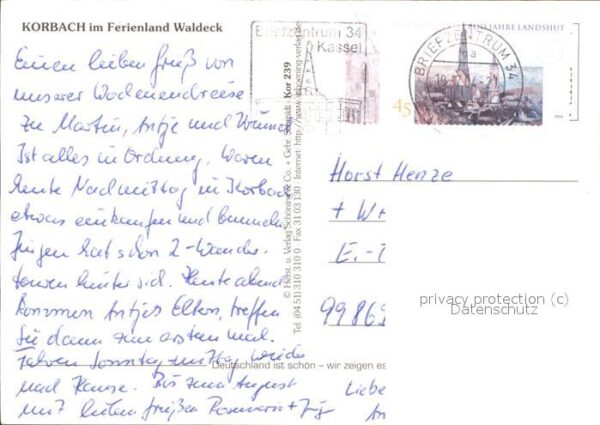 KORBACH im Ferienland Waldeck
Einen lieben Gruß von
unserer Wochenendreise
zu Martin, Antje und
Ist alles in Ordnung. Waren
heute Nachmittag in Korbach
etwas einkaufen und bummeln
Jürgen hat schon 2 Wander-
touren hinter sich. Heute abend
kommen Antjes Eltern, treffen
Sie dann zum ersten mal.
Fahren Sonntag mittag wieder
nach Hause. Bis zum August
mit lieben Grüßen Rosemarie + Jürg
Liebe
An
© Herst. u. Verlag Schöning & Co. + Gebr. Schmidt Kor 239
Tel. (04 51) 310 310 0 · Fax 31 03 130 · Internet: http://www.schoening-verlag.de
Deutschland ist schön – wir zeigen es
Briefzentrum 34
Kassel
BRIEFZENTRUM 34
a
800 JAHRE LANDSHUT
45
Horst Henze
+ W
E.-T
99869
privacy protection (c)
Datenschutz